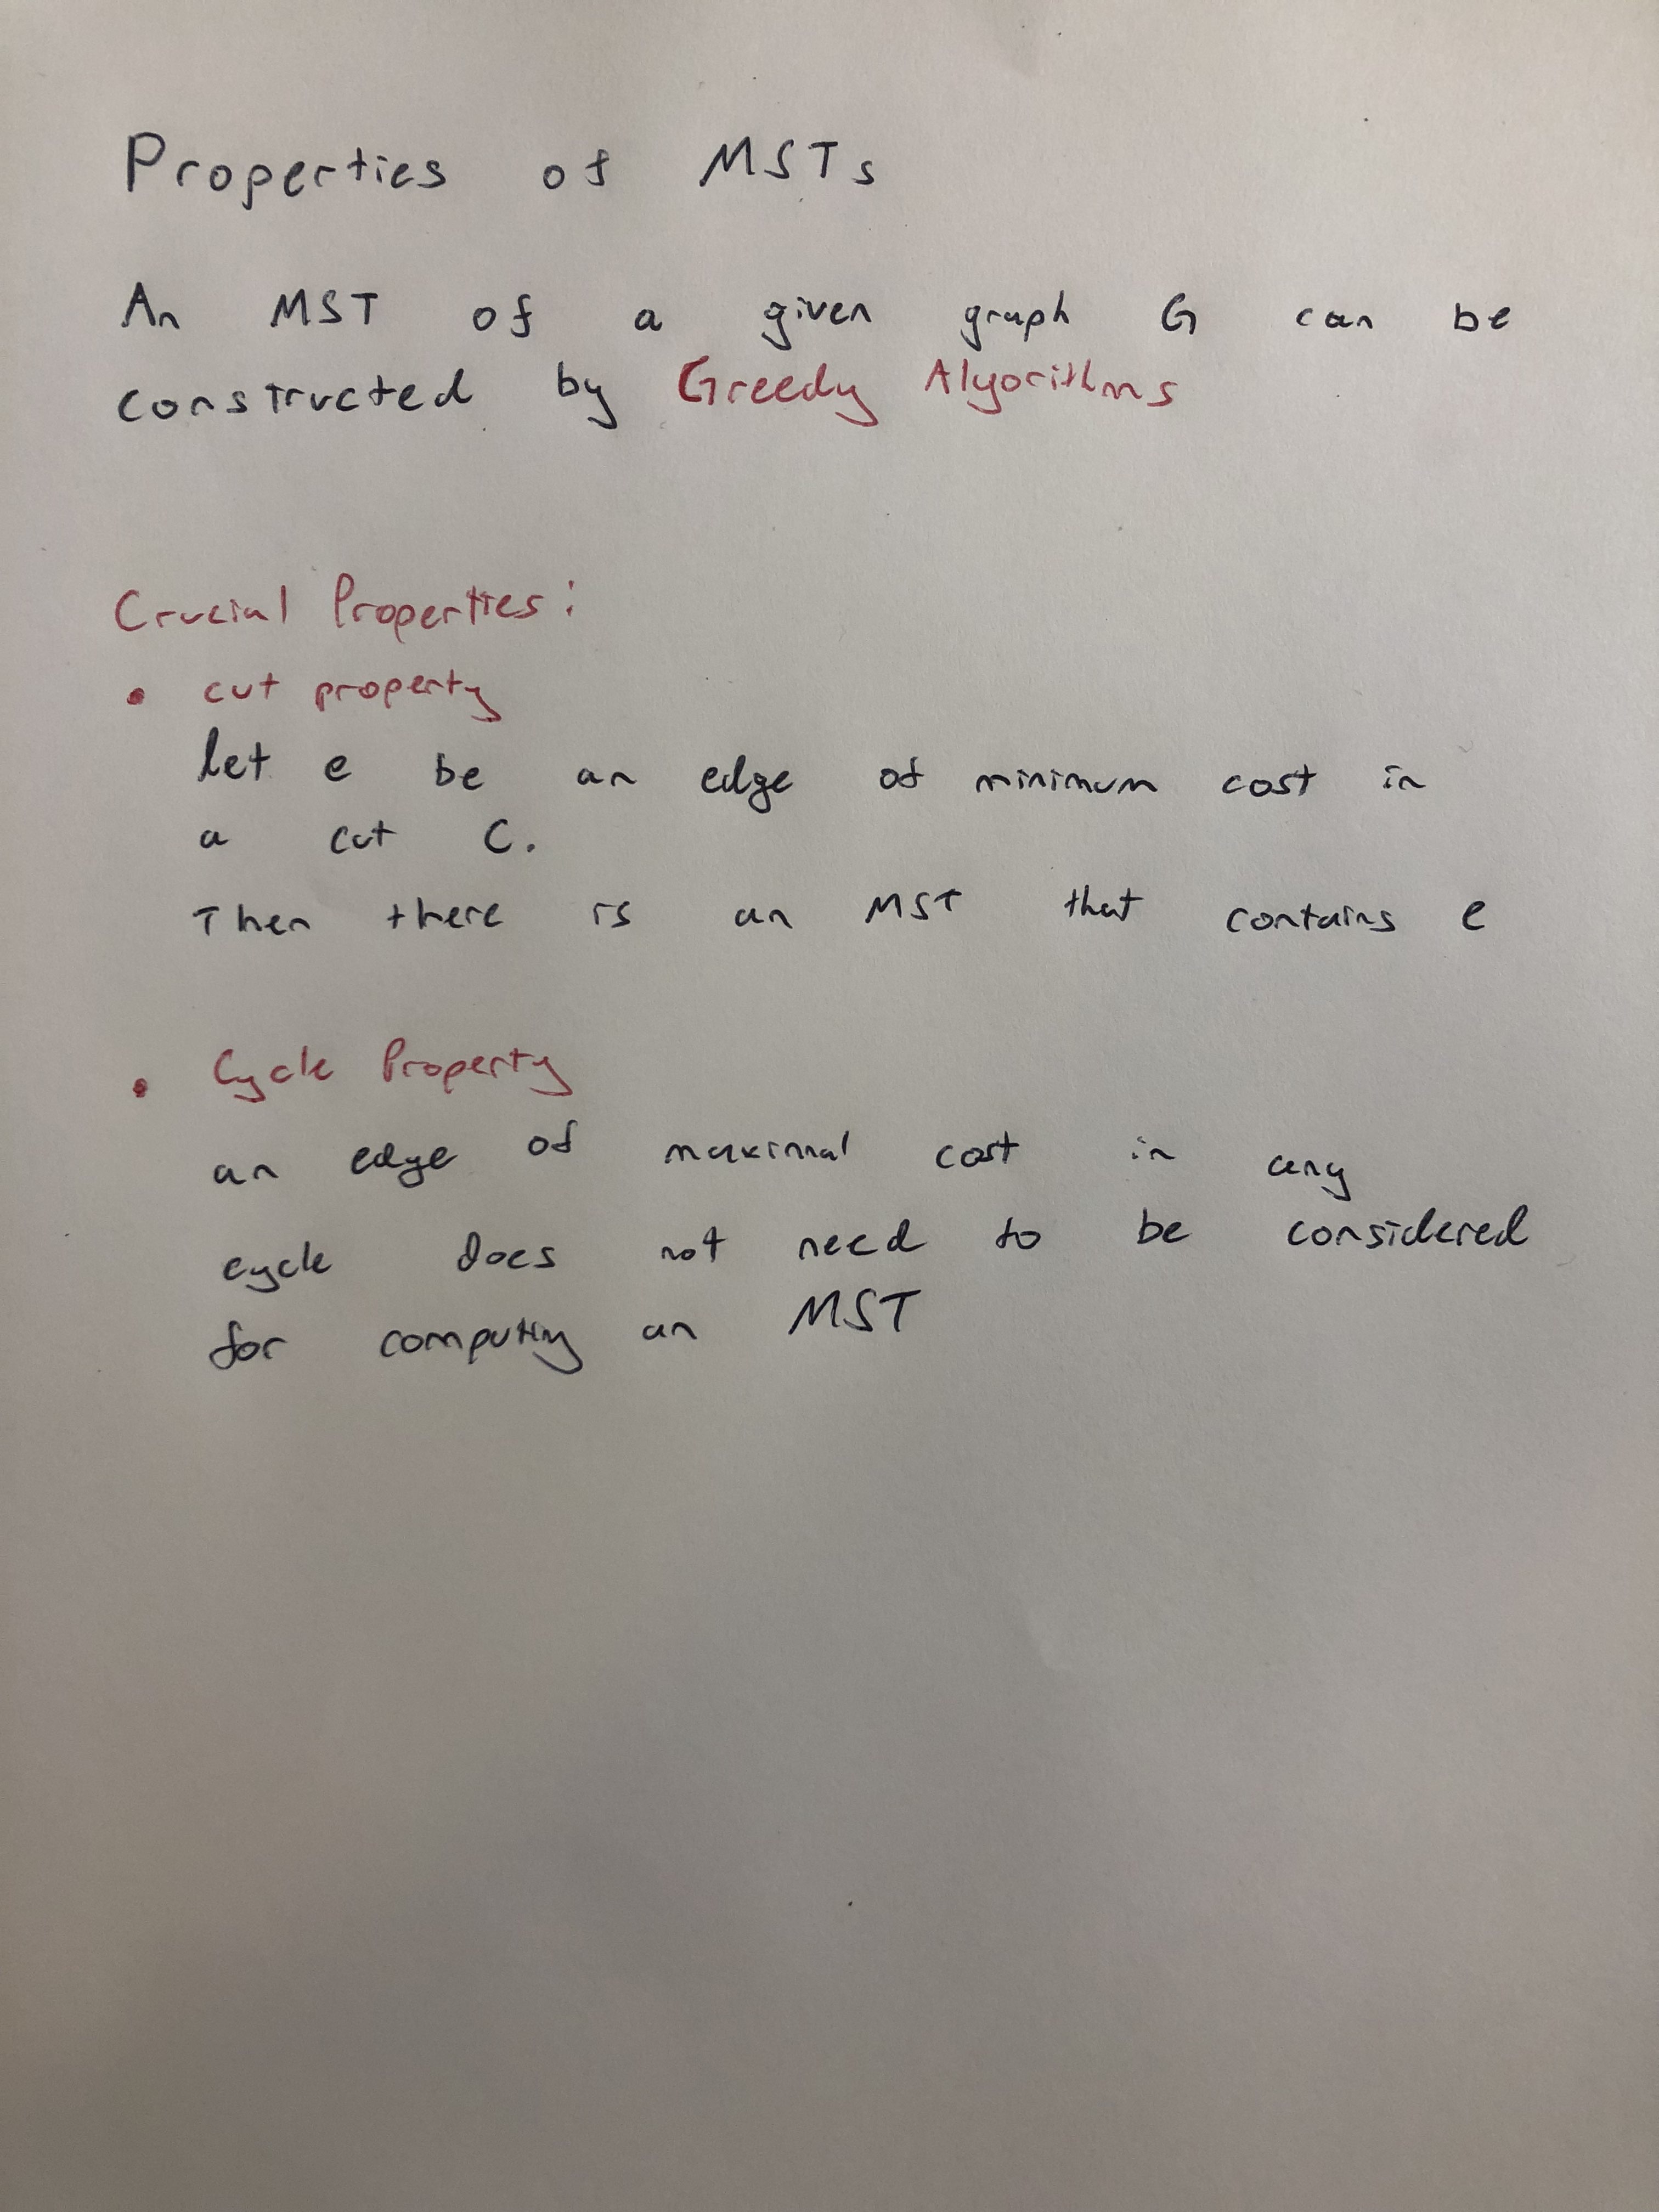 Properties of MSTs
An MST of a given graph G can be
constructed by Greedy Algorithms
Crucial Properties:
• cut property
let e be an edge of minimum cost in
a cut C.
Then there is an MST that contains e
• Cycle Property
an edge of maximal cost in any
cycle does not need to be considered
for computing an MST